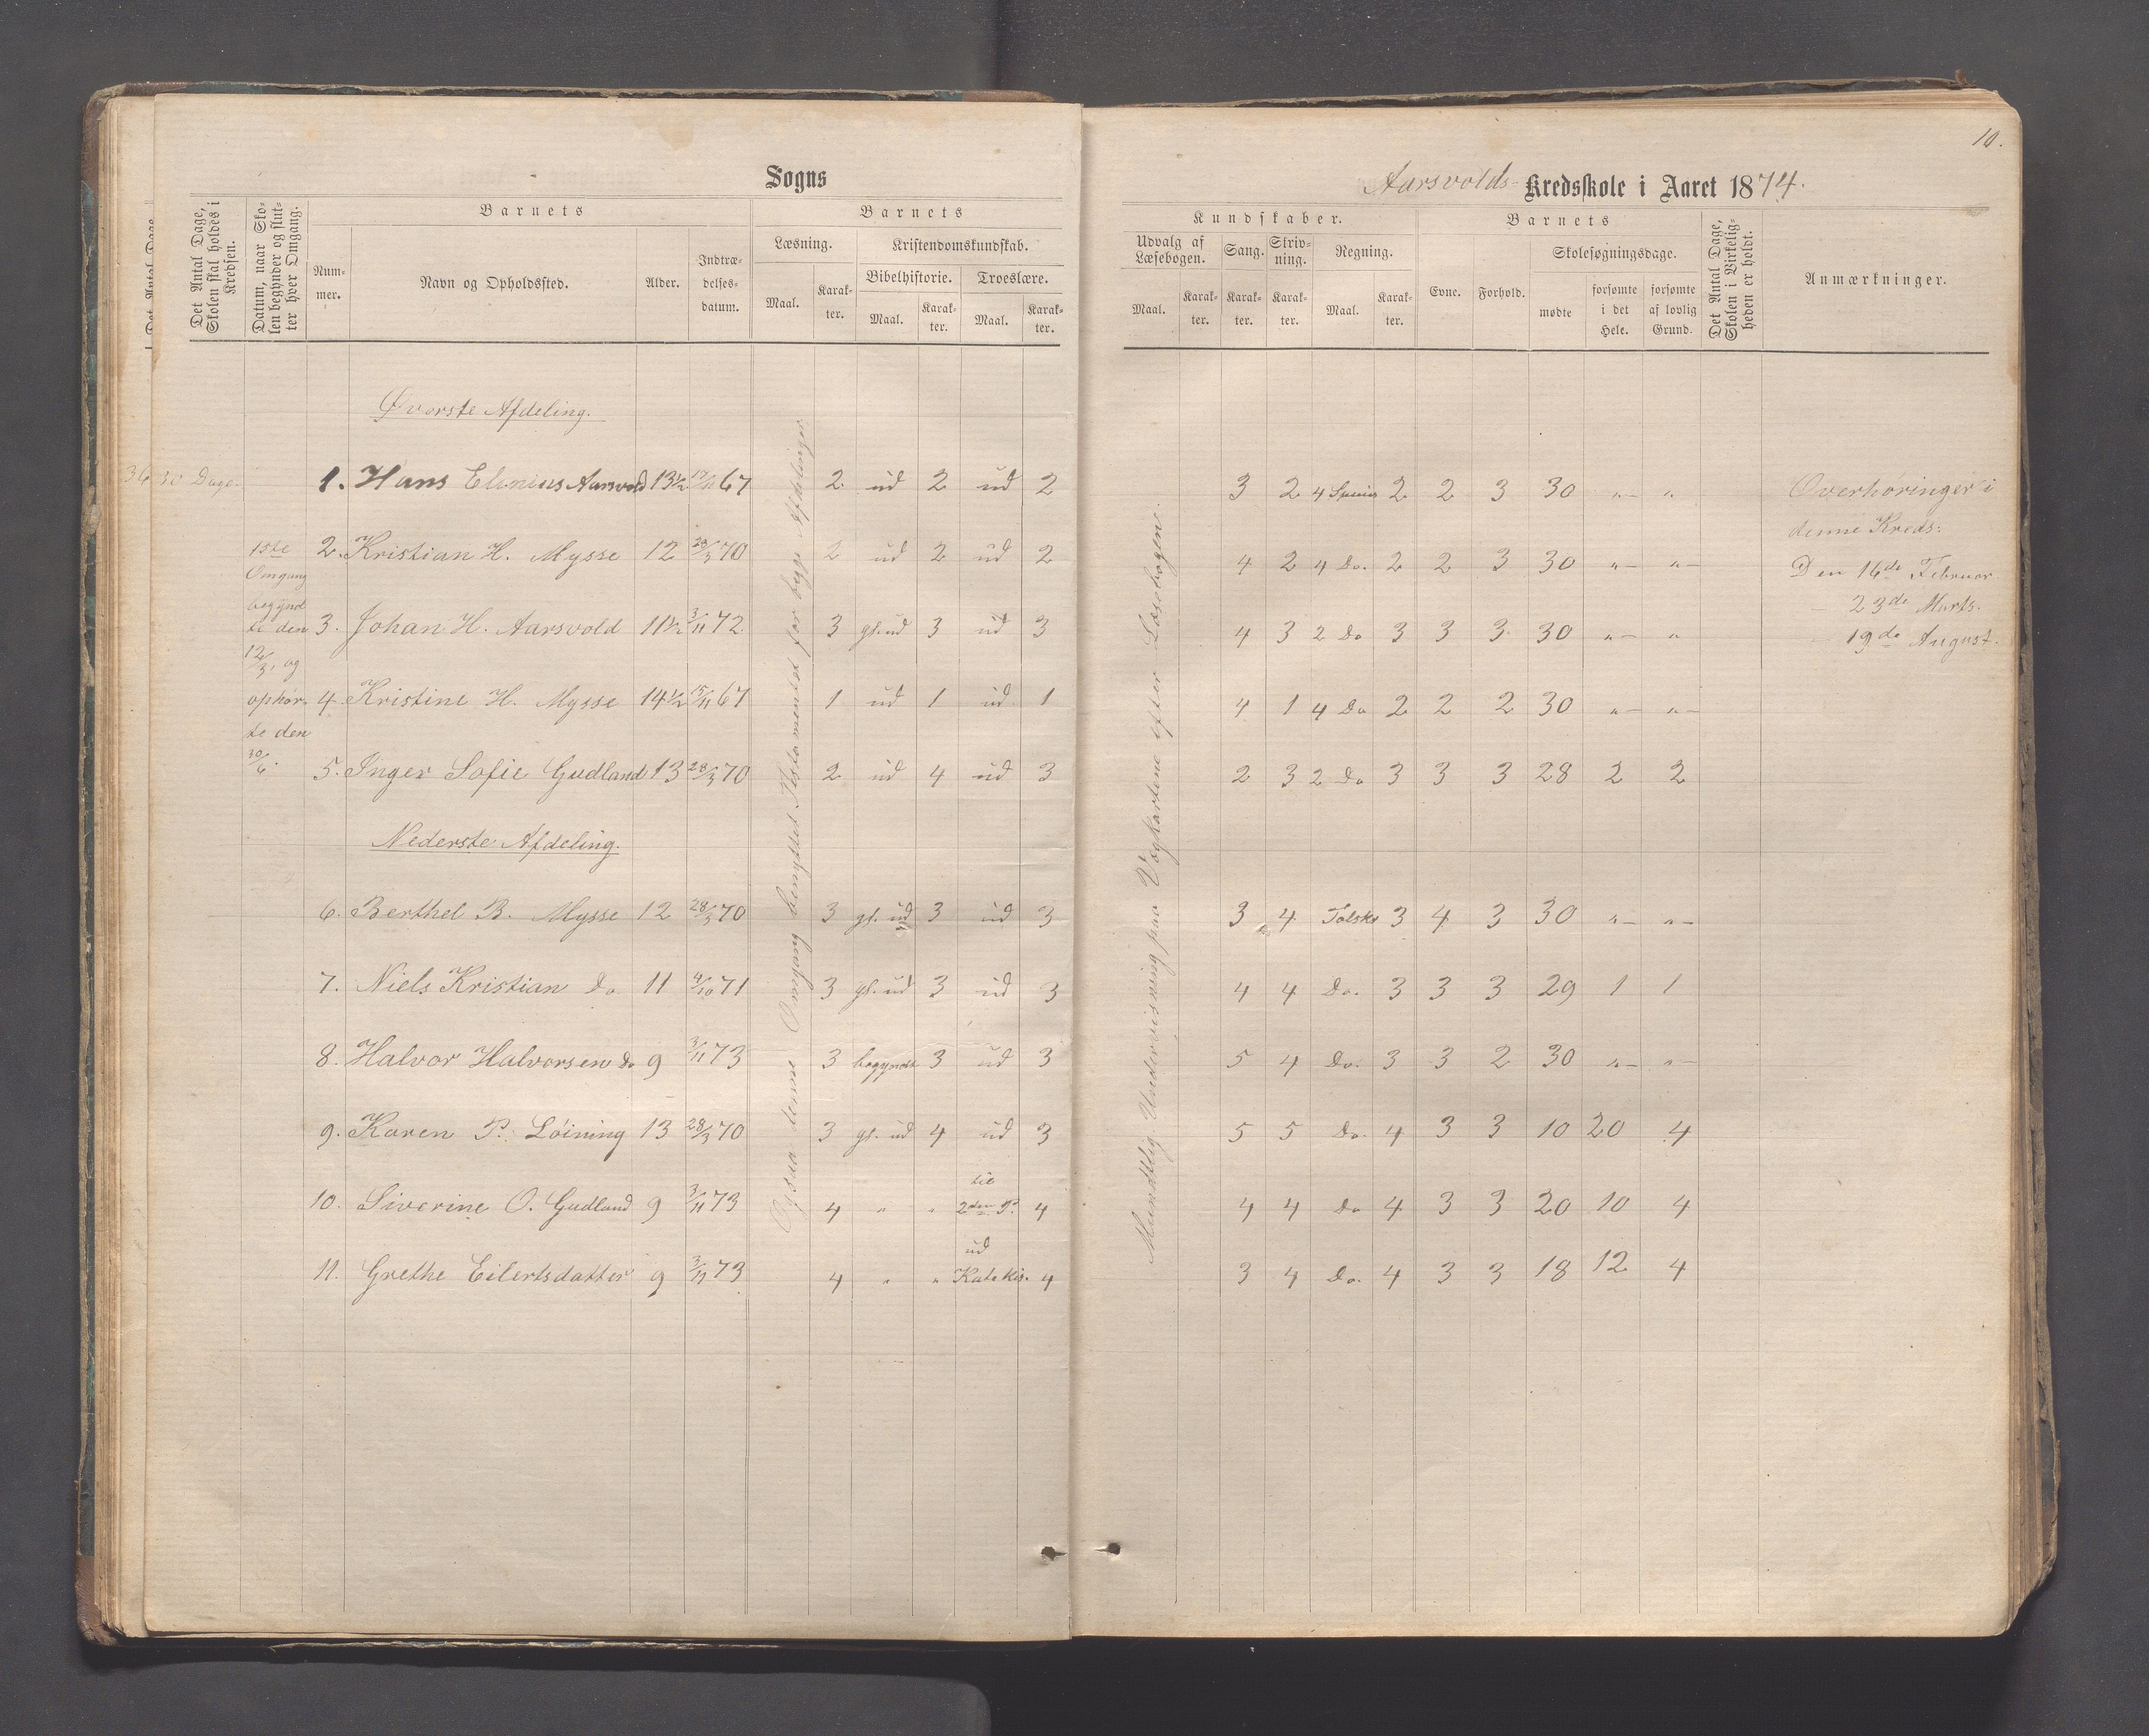 10.
Sogns
Aarsvolds- Kredsskole i Aaret 1874.
Det Antal Dage, Skolen skal holdes i Kredsen.
Datum, naar Skolen begynder og slutter hver Omgang.
Barnets
Nummer.
Navn og Opholdssted.
Alder.
Indtrædelsesdatum.
Barnets
Læsning.
Maal.
Karakter.
Kristendomskundskab.
Bibelhistorie.
Maal.
Karakter.
Troeslære.
Maal.
Karakter.
Kundskaber.
Udvalg af Læsebogen.
Maal.
Karakter.
Sang.
Karakter.
Skrivning.
Karakter.
Regning.
Maal.
Karakter.
Barnets
Evne.
Forhold.
Skolesøgningsdage.
mødte
forsømte i det Hele.
forsømte af lovlig Grund.
Det Antal Dage, Skolen i Virkeligheden er holdt.
Anmærkninger.
Øverste Afdeling.
36 30 Dage.
1ste
Omgang
begynd
te den
12/3, og
ophør-
te den
30/6.
1. Hans Elenius Aarsvold 13½ 17/11 67 2 ud 2 ud 2 3 2 4 2 2 3 30 „ „
2. Kristian H. Mysse 12 28/3 70 2 ud 2 ud 2 4 2 4 Do. 2 2 3 30 „ „
3. Johan H. Aarsvold 11½ 3/11 72 3 gl. ud 3 ud 3 4 3 2 Do 3 3 3 30 „ „
4. Kristine H. Mysse 14½ 15/11 67 1 ud 1 ud 1 4 1 4 Do 2 2 2 30 „ „
5. Inger Sofie Gudland 13 28/3 70 2 ud 4 ud 3 2 3 2 Do 3 3 3 28 2 2
Nederste Afdeling.
6. Berthel B. Mysse 12 28/3 70 3 gl. ud 3 ud 3 3 4 3 4 3 30 „ „
7. Niels Kristian Do 11 4/10 71 3 gl. ud 3 ud 3 4 4 Do. 3 3 3 29 1 1
8. Halvor Halvorsen Do 9 3/11 73 3 begyndt 3 ud 3 5 4 Do. 3 3 2 30 „ „
9. Karen P. Løining 13 28/3 70 3 gl. ud 4 ud 3 5 5 Do. 4 3 3 10 20 4
10. Siverine O. Gudland 9 3/11 73 4 „ „ til 2den P. 4 4 4 Do 4 3 3 20 10 4
11. Grethe Eilertsdatter 9 3/11 73 4 „ „ ud Katekis. 4 3 4 Do. 4 3 3 18 12 4
Ogsaa denne Omgang benyttet Testamentet for begge Afdelinger
Mundtlig Undervisning paa Vægkartene efter Læsebogene.
Overhøringer i
denne Kreds:
Den 16de Februar
— 23de Marts.
19de August.